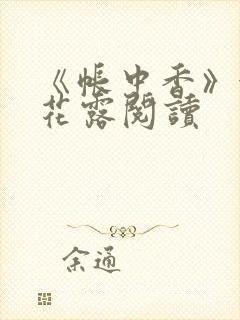 《帳中香》
花露閱讀
余通